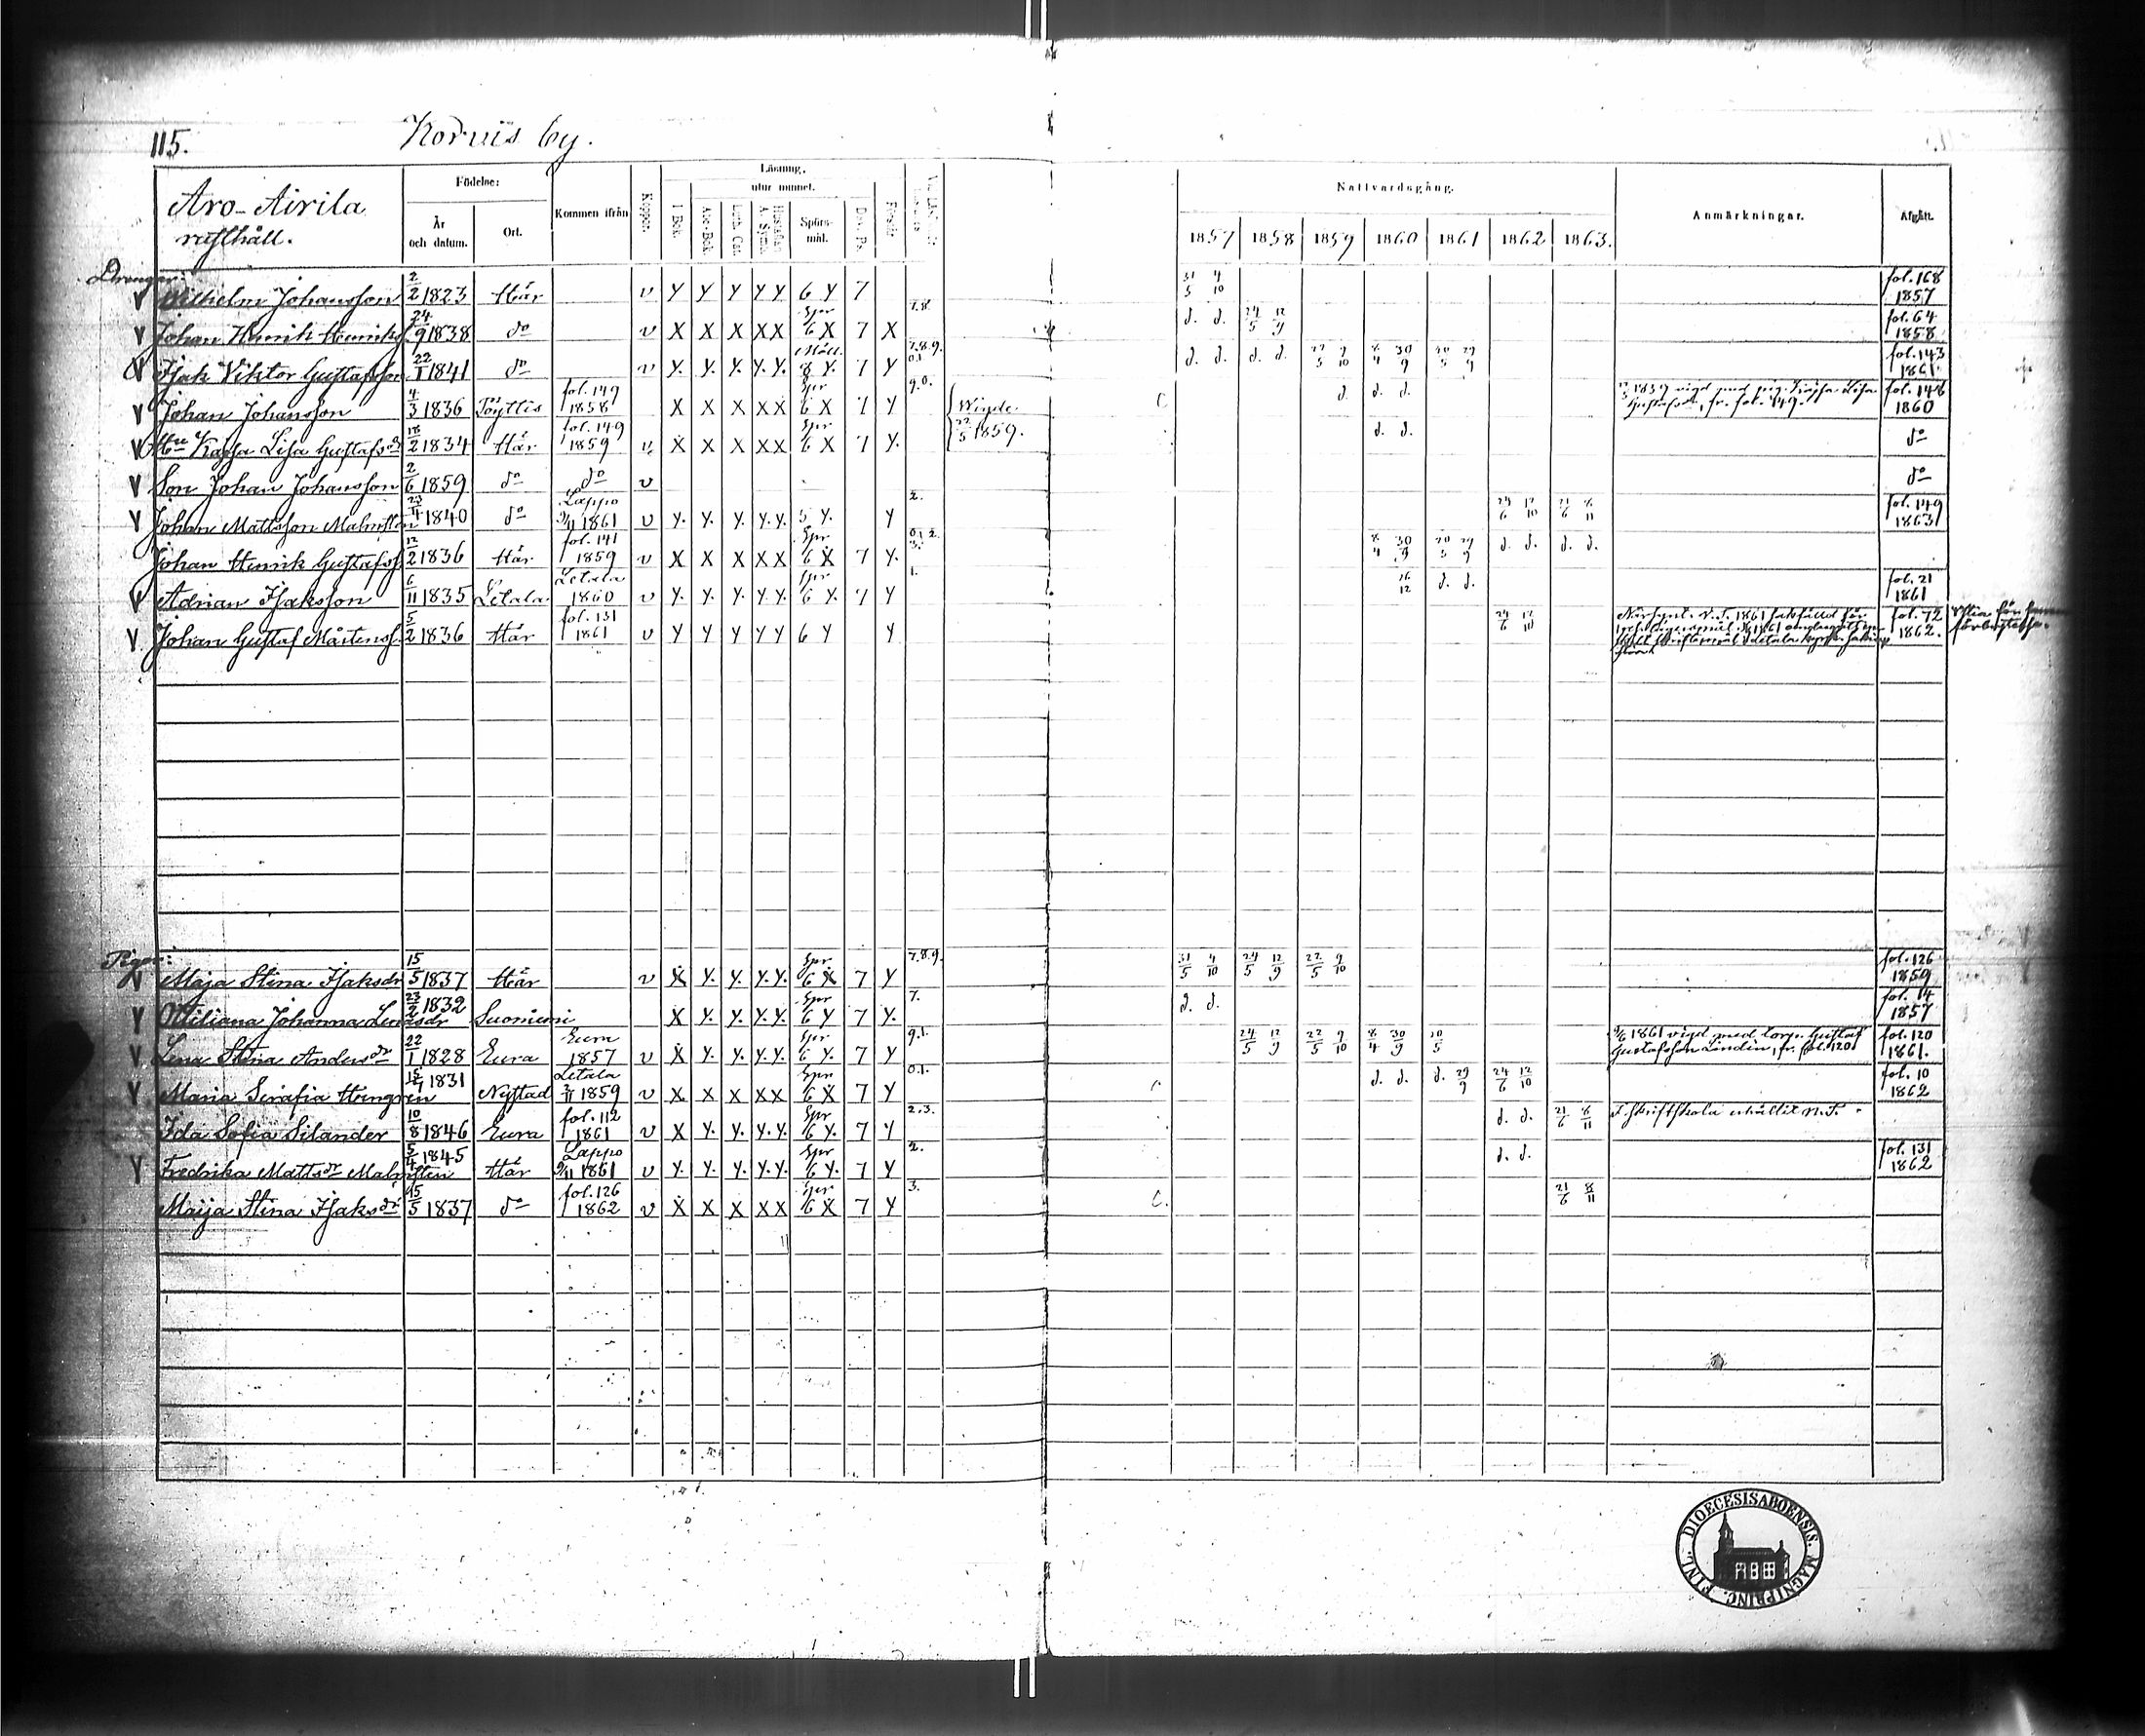 115.
Korvis by.
Aro-Airila
rusthåll.
Födelse:
År
och datum.
Ort.
Kommen ifrån
Koppor.
Läsning.
utur minnet.
I Bok.
Abc-Bok.
Luth. Cat.
Hustaflan
A. Symb.
Spörs-
mål.
Dav. Ps.
Förstår
Nattvardsgång.
1857 1858 1859 1860 1861 1862 1863.
Anmärkningar.
Afgått.
Drengar:
V Wilhelm Johansson 2/2 1823 Här v y y y y y 6 y 7 31/5 4/10 fol. 168 1857
V Johan Henrik Henriks. 24/9 1838 do v X X X X X Spr 6 X 7 X 7.8. d. d. 24/5 12/9 fol. 64 1858
V Isak Viktor Gustafsson 22/1 1841 do v y. y. y. y. y. Måll. 8 y. 7 y 7.8.9. 0.1. d. d. d. d. 22/5 9/10 8/4 30/9 20/5 29/9 fol. 143 1861
V Johan Johansson 4/3 1836 Töyttis fol. 149 1858 X X X X X Spr 6 X 7 y 9.0. Wigde 22/5 1859. d. d. d. fol. 148 1860
V Hu Kajsa Lisa Gustafsdr 18/2 1834 Här fol. 149 1859 v. X X X X X Spr 6 X 7 y. d. d. do
V Son Johan Johansson 2/6 1859 do do v do
V Johan Mattsson Malmsten 23/4 1840 do Lappo 9/11 1861 v y. y. y. y. y. 5 y. y 2. 24/6 12/10 21/6 8/11 fol. 149 1863
Johan Henrik Gustafss. 12/2 1836 Här fol. 141 1859 v X X X X X Spr 6 X 7 y. 0.1.2. 3. 8/4 30/9 20/5 29/9 d. d. d. d.
V Adrian Isaksson 6/11 1835 Letala Letala 1860 v y. y. y. y. y. Spr 6 y. 7 y 1. 16/12 d. d. fol. 21 1861
V Johan Gustaf Mårtenss. 5/2 1836 Här fol. 131 1861 v y y y y y 6 y y 24/6 12/10 fol. 72 1862.
Pigor:
V Maja Stina Isaksdr 15/5 1837 Här v X y. y. y. y. Spr 6 X 7 y 7.8.9. 31/5 4/10 24/5 12/9 22/5 9/10 fol. 126 1859
V Wiliana Johanna Lenasdr 23/2 1832 Suoniemi X y. y. y. y. Spr 6 y 7 y. 7. d. d. fol. 14 1857
V Lena Stina Andersdr 22/1 1828 Eura Eura 1857 v X y. y. y. y. Spr 6 y. 7 y 9.1. 24/5 12/9 22/5 9/10 8/4 30/9 20/5 1861 vigd med torp. Gustaf Gustafsson Lindén, fr. fol. 120 fol. 120 1861.
V Maria Serafia Hengren 1831 Nystad Letala 2/11 1859 v X X X X X Spr 6 X 7 y 0.1. d. d. d. 29/9 24/6 12/10 fol. 10 1862
Ida Sofia Silander 10/8 1846 Eura fol. 112 1861 v X y. y. y. y. Spr 6 y. 7 y 2.3. d. d. 21/6 8/11 I skriftskola erhållit N.T.
V Fredrika Mattsdr Malmsten 5/4 1845 Här Lappo 9/11 1861 v y. y. y. y. y. Spr 6 y. 7 y 2. d. d. fol. 131 1862
Maija Stina Isaksdr 15/5 1837 do fol. 126 1862 v X X X X X Spr 6 X 7 y 3. C. 21/6 8/11
DIOECESIS ABOENSIS. MAGNI PRINC. FINL.